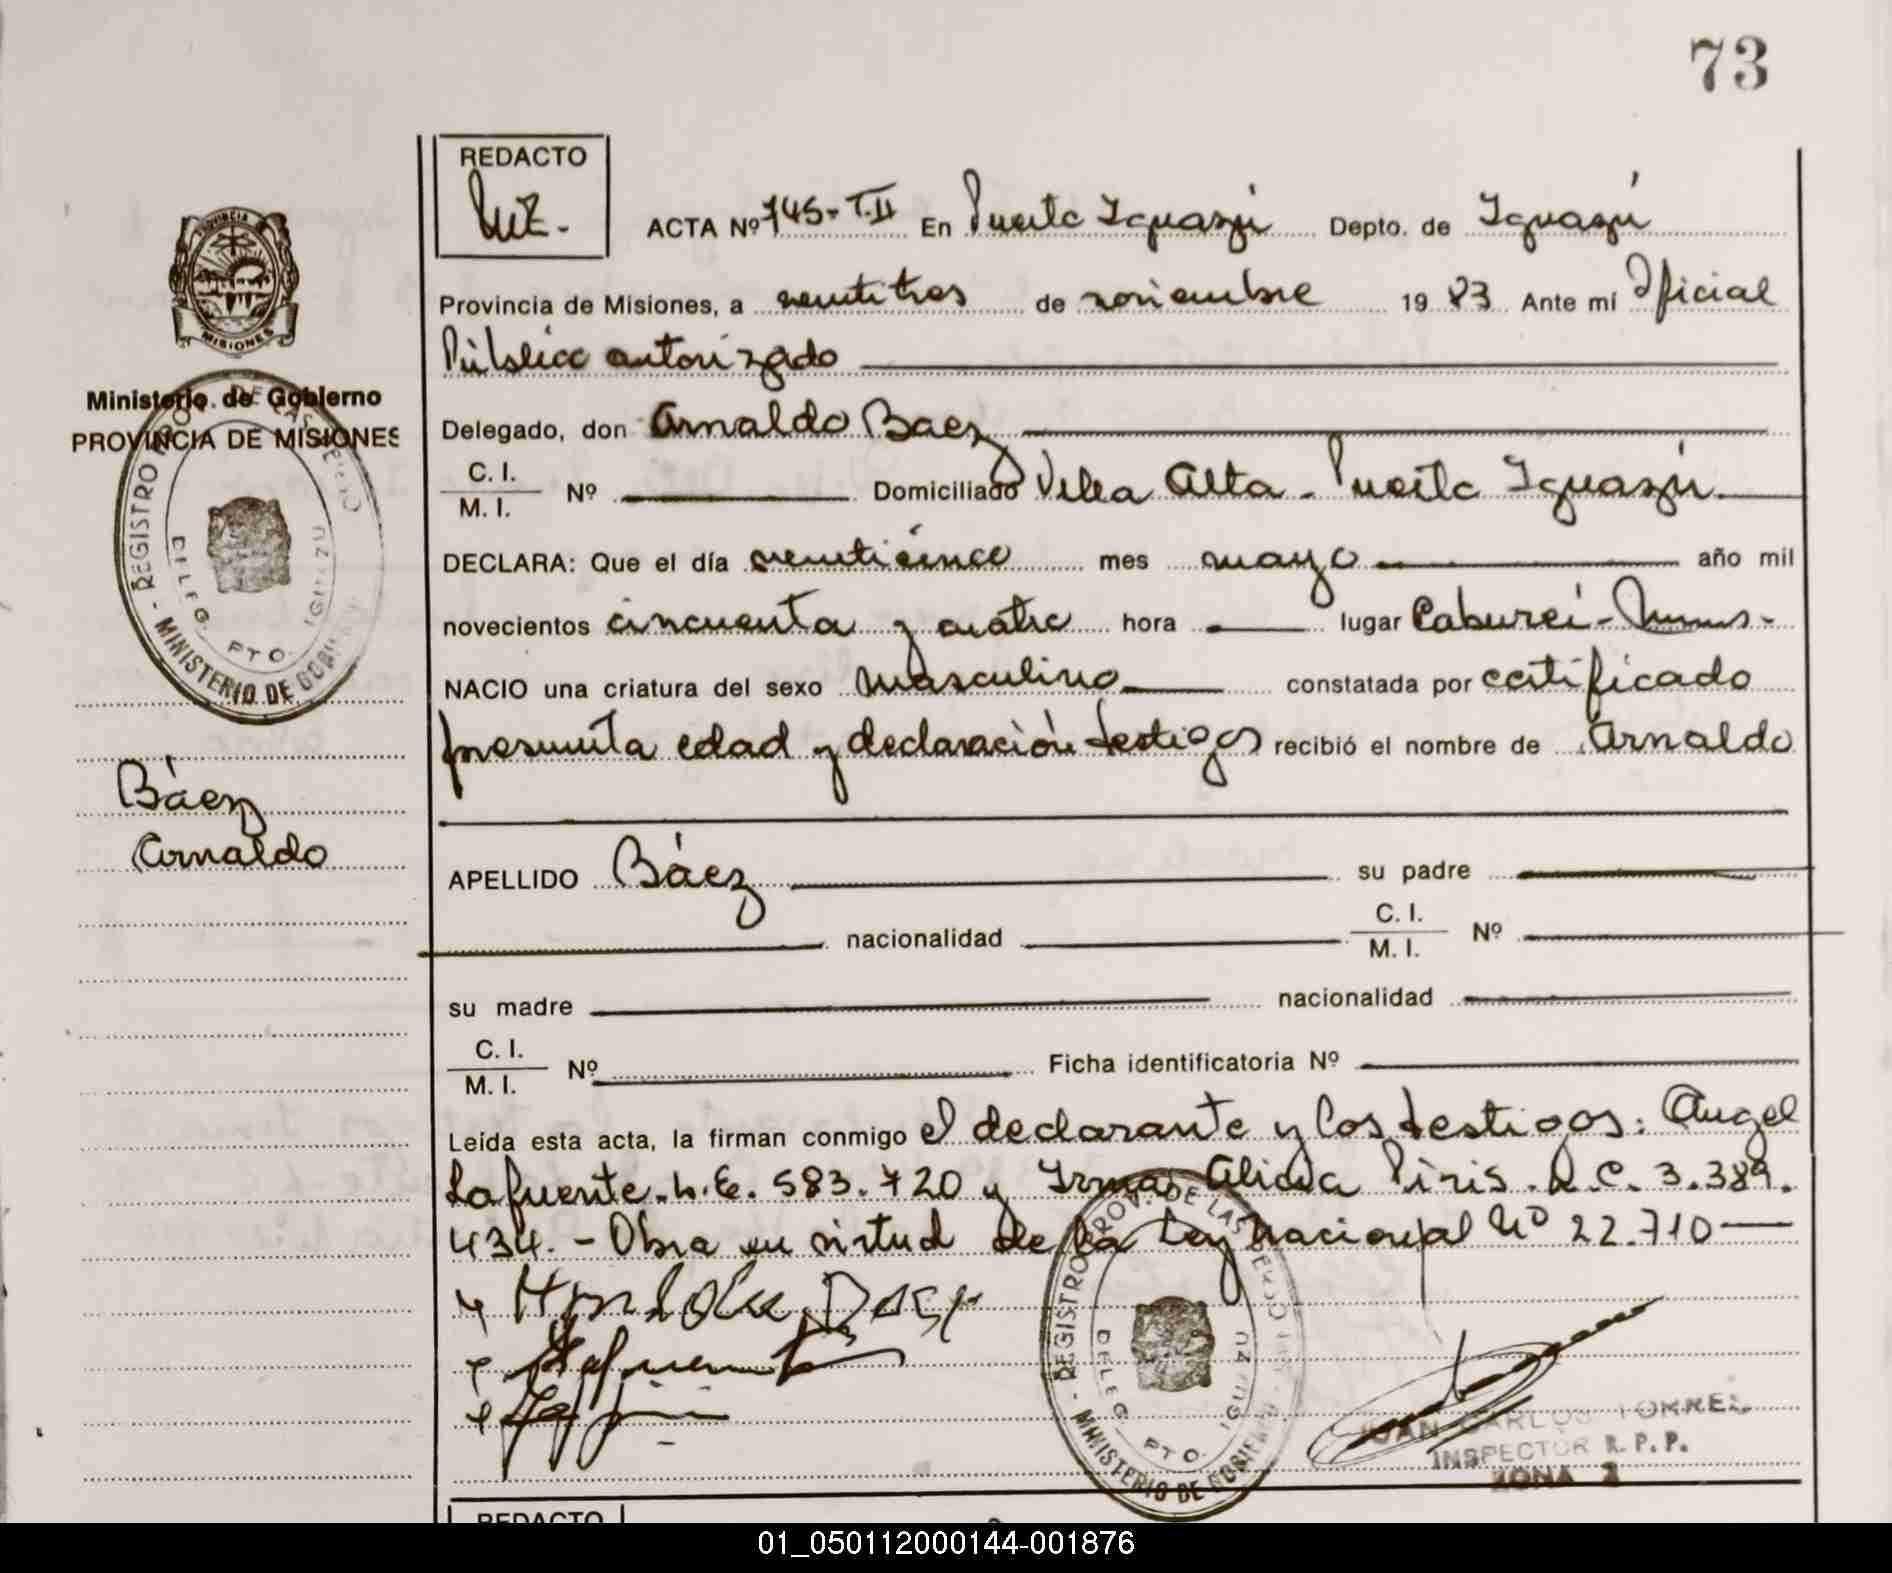 73
REDACTO
ACTA Nº 745-T.II En Puerto Iguazú Depto. de Iguazú
Provincia de Misiones, a veintitres de noviembre 1983 Ante mí Oficial
Público autorizado
PROVINCIA
MISIONES
Ministerio de Gobierno
PROVINCIA DE MISIONES
Delegado, don Arnaldo Baez
C. I.
M. I. Nº Domiciliado Villa Alta - Puerto Iguazú
REGISTRO PROV. DE LAS PERSONAS - MINISTERIO DE GOBIERNO
DELEG. PTO. IGUAZU
DECLARA: Que el día veinticinco mes mayo año mil
novecientos cincuenta y cuatro hora lugar Caburei-
NACIO una criatura del sexo masculino constatada por certificado
presunta edad y declaración testigos recibió el nombre de Arnaldo
Báez
Arnaldo
APELLIDO Báez su padre
nacionalidad C. I.
M. I. Nº
su madre nacionalidad
C. I.
M. I. Nº Ficha identificatoria Nº
Leída esta acta, la firman conmigo el declarante y los testigos: Angel
Lafuente. L.E. 583.720 y Irma Alicia Piris. L.C. 3.389.
434. - Obra en virtud de la Ley Nacional Nº 22.710
REGISTRO PROV. DE LAS PERSONAS - MINISTERIO DE GOBIERNO
DELEG. PTO. IGUAZU
JUAN CARLOS TORRES
INSPECTOR R. P. P.
ZONA 2
REDACTO
01_050112000144-001876